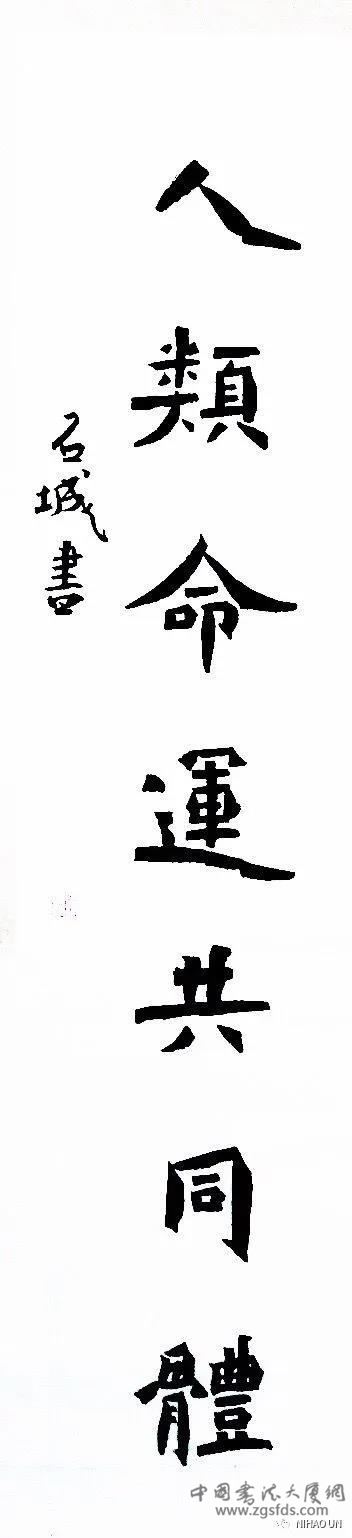 人類命運共同體
石城書
中國書法大厦網
www.zgsfds.com
NIHAO UN